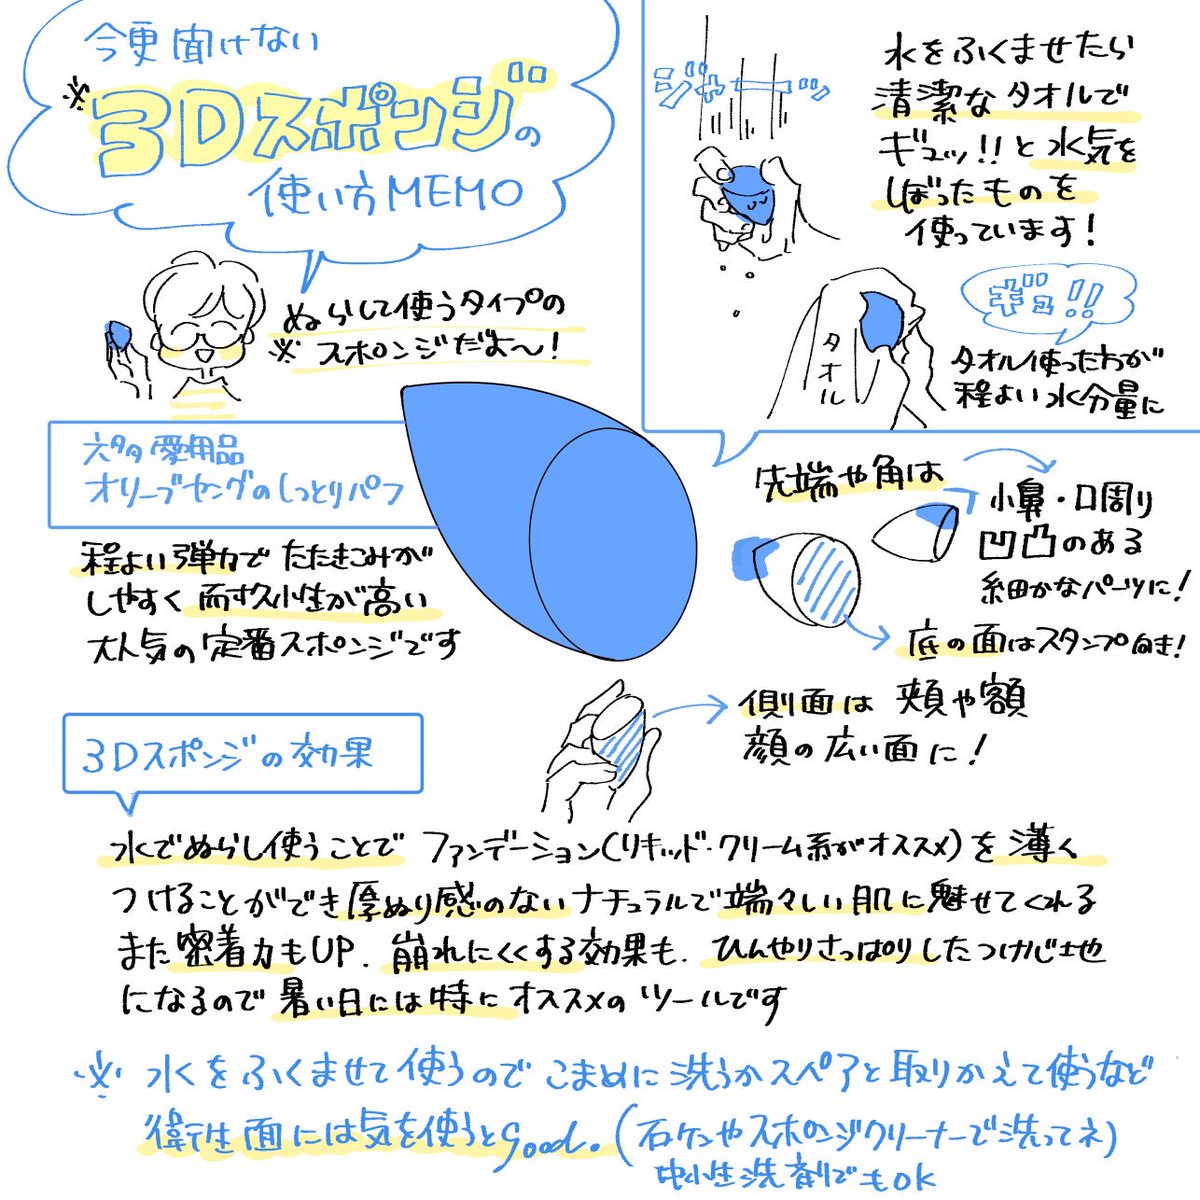 今更聞けない
※3Dスポンジの
使い方MEMO
ぬらして使うタイプの
※スポンジだよ〜!
ジャーッ
水をふくませたら
清潔なタオルで
ギュッ!!と水気を
しぼったものを
使っています!
ギュ!!
タオル
タオル使ったわが
程よい水分量に
六多愛用品
オリーブヤングのしっとりパフ
程よい弾力でたたきこみが
しやすく耐久性が高い
大人気の定番スポンジです
先端や角は
小鼻・口周り
凹凸のある
細かなパーツに!
底の面はスタンプ向き!
側面は頬や額
顔の広い面に!
3Dスポンジの効果
水でぬらし使うことでファンデーション(リキッド・クリーム系がオススメ)を薄く
つけることができ厚ぬり感のないナチュラルで端々しい肌に魅せてくれる
また密着力もUP、崩れにくくする効果も、ひんやりさっぱりしたつけ心地
になるので暑い日には特にオススメのツールです
※水をふくませて使うのでこまめに洗うかスペアと取りかえて使うなど
衛生面には気を使うとGood。(石ケンやスポンジクリーナーで洗ってネ)
中性洗剤でもOK